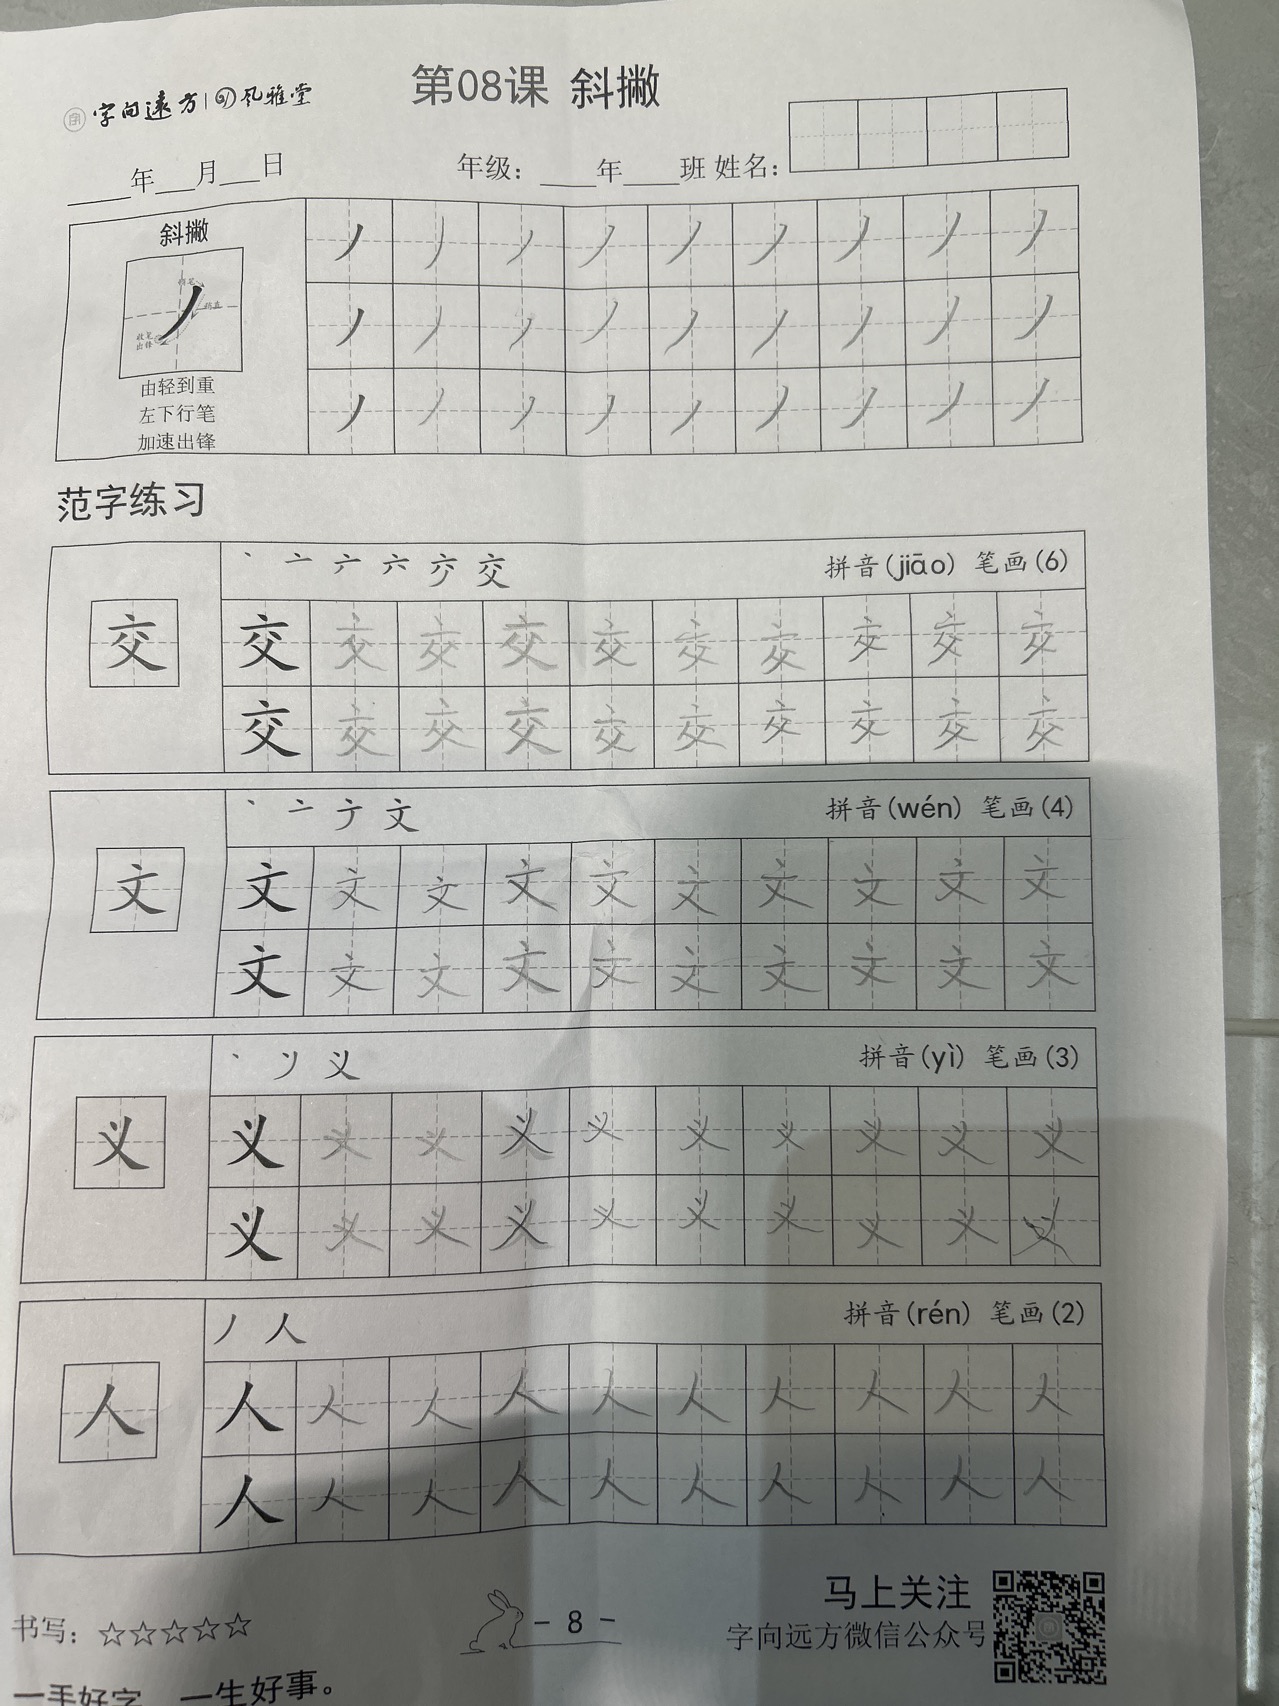 第08课 斜撇
字向远方 风雅堂
____年___月___日 年级：____年____班 姓名：
斜撇
稍直
收笔
出锋
由轻到重
左下行笔
加速出锋
丿 丿 丿 丿 丿 丿 丿 丿 丿
丿 丿 丿 丿 丿 丿 丿 丿 丿
丿 丿 丿 丿 丿 丿 丿 丿 丿
范字练习
丶 亠 六 交 拼音(jiāo) 笔画(6)
交
交 交 交 交 交 交 交 交 交 交
交 交 交 交 交 交 交 交 交 交
丶 亠 文 拼音(wén) 笔画(4)
文
文 文 文 文 文 文 文 文 文 文
文 文 文 文 文 文 文 文 文 文
丶 义 拼音(yì) 笔画(3)
义
义 义 义 义 义 义 义 义 义 义
义 义 义 义 义 义 义 义 义 义
丿 人 拼音(rén) 笔画(2)
人
人 人 人 人 人 人 人 人 人 人
人 人 人 人 人 人 人 人 人 人
书写：☆☆☆☆☆
- 8 -
马上关注
字向远方微信公众号
一手好字 一生好事。